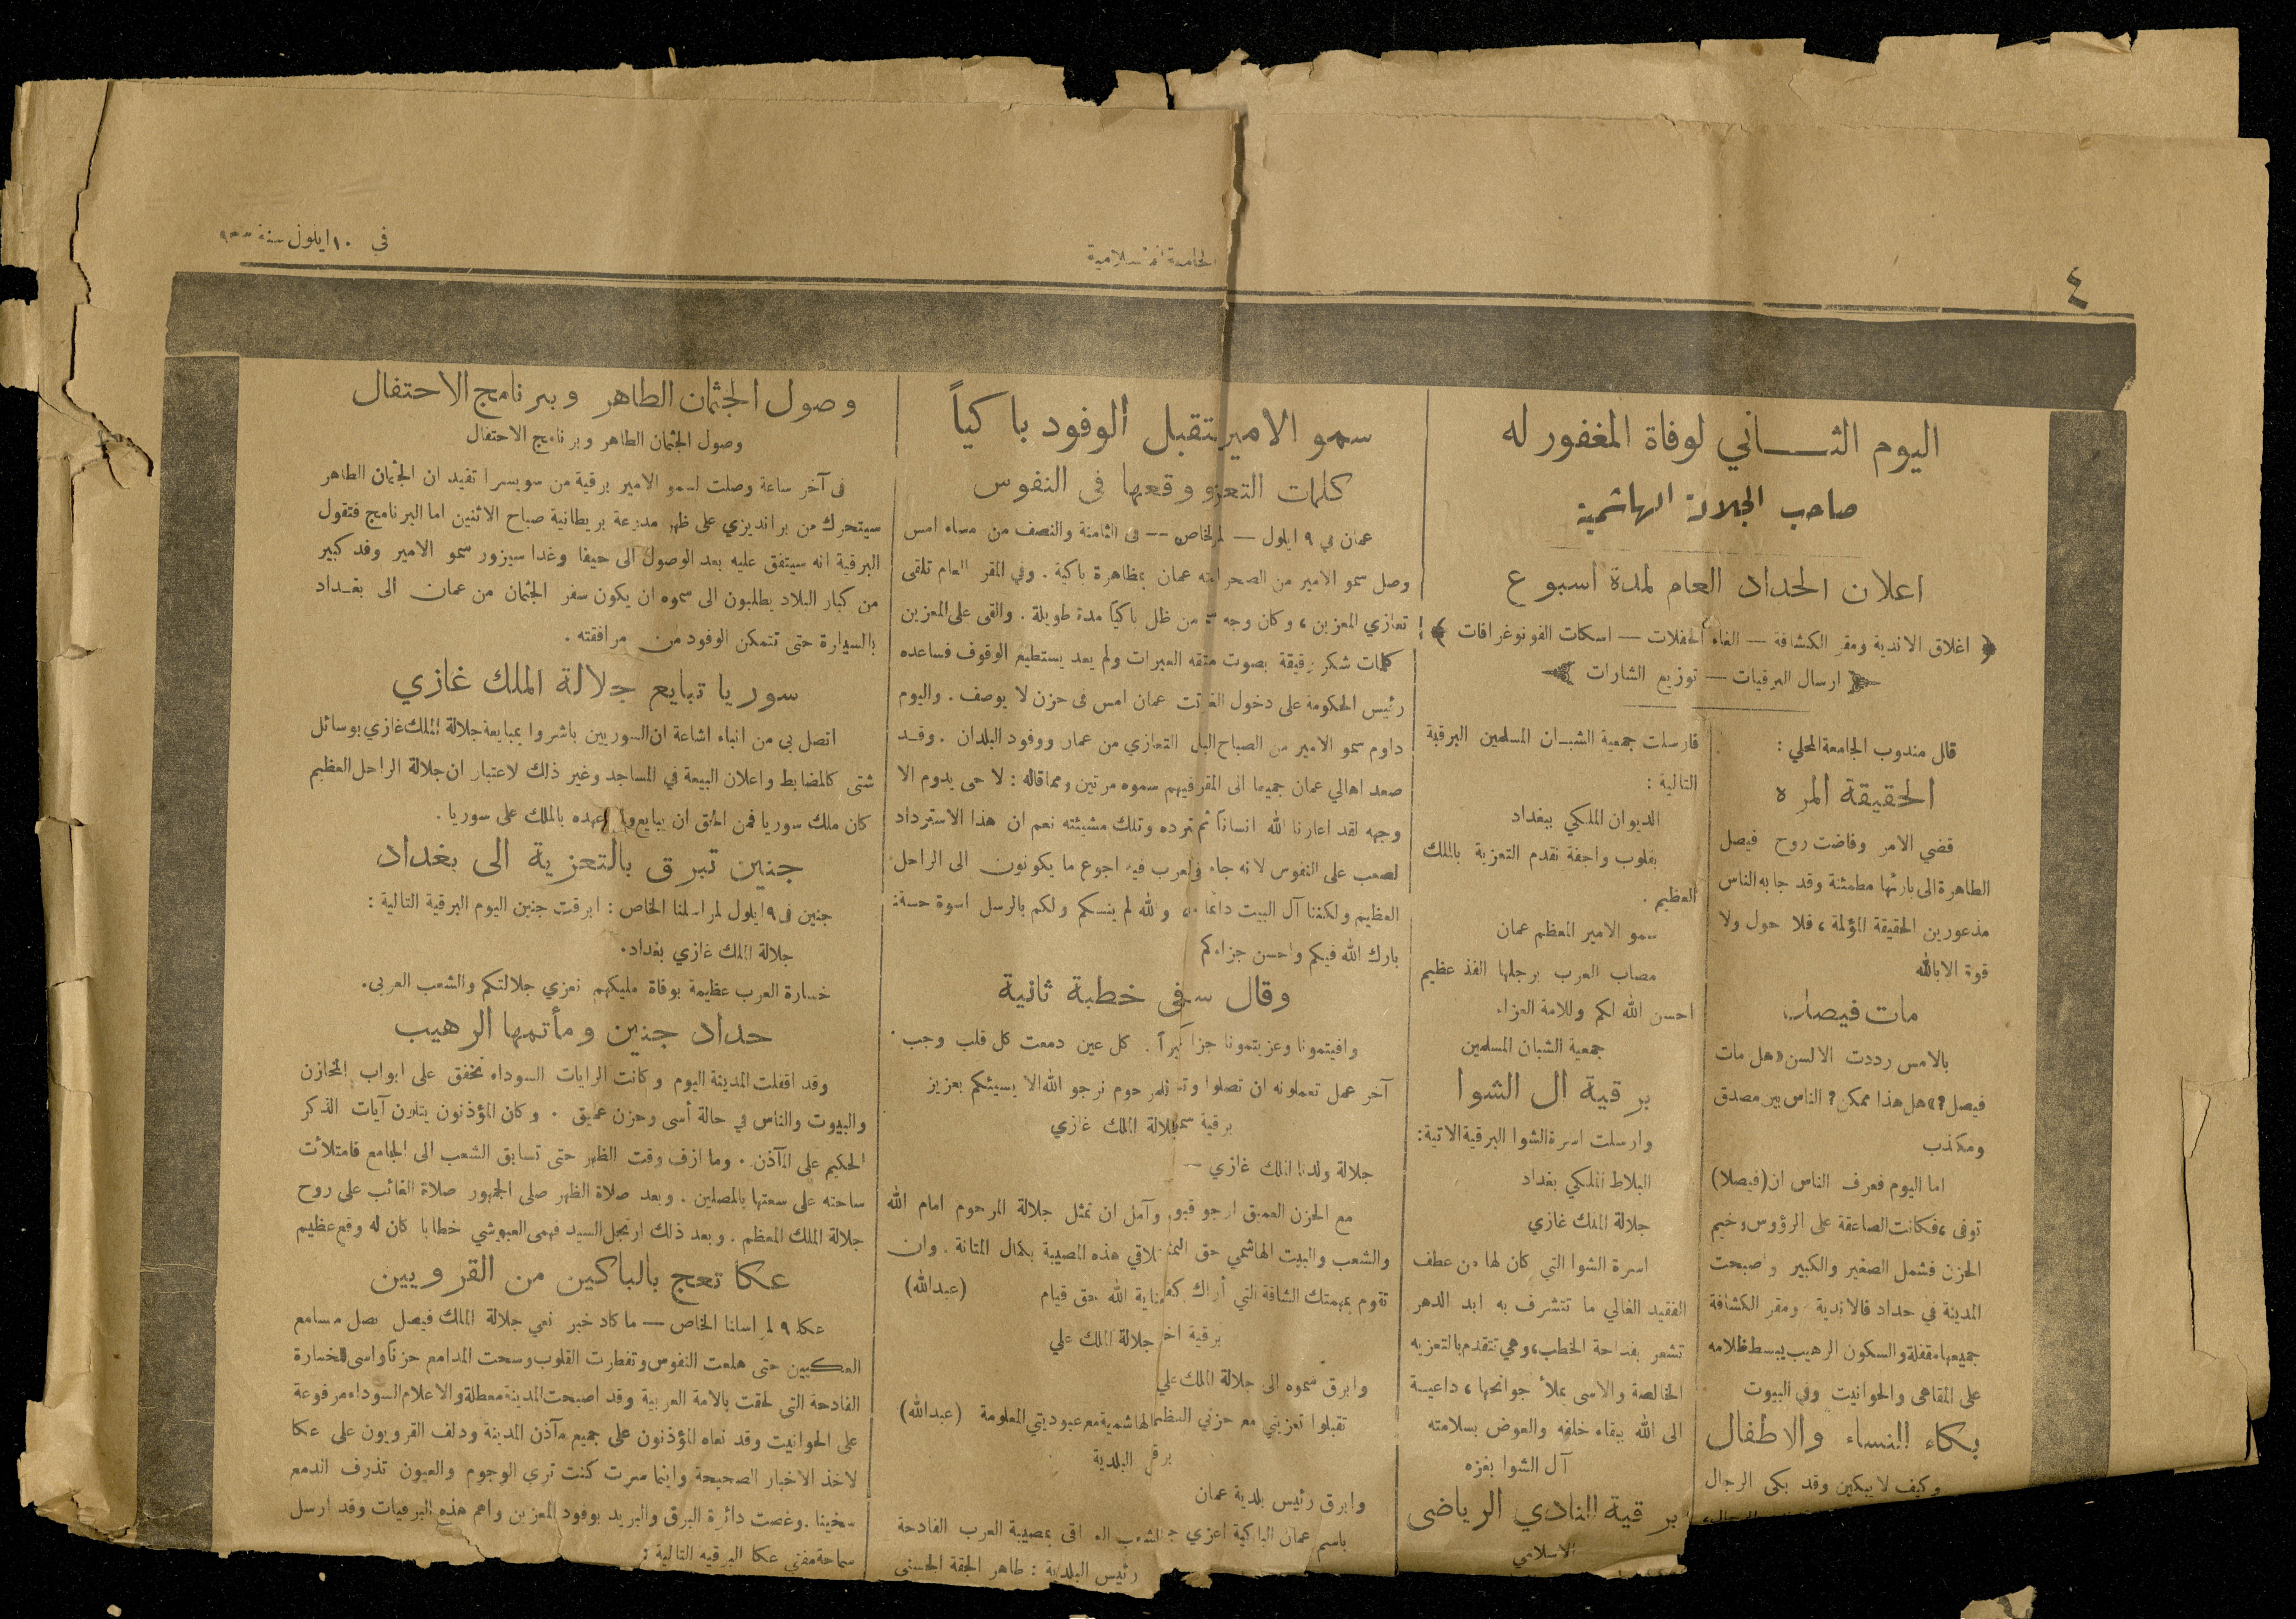 ٤
الجامعة الاسلامية
في ١٠ ايلول سنة
اليوم الثــــاني لوفاة المغفور له
صاحب الجلالة الهاشمية
اعلان الحداد العام لمدة اسبوع
اغلاق الاندية ومقر الكشافة — الغاء الحفلات — اسكات الفونوغرافات
ارسال البرقيات — توزيع الشارات
قال مندوب الجامعة المحلي :
الحقيقة المره
قضي الامر وفاضت روح فيصل
الطاهرة الى بارئها مطمئنة وقد جابه الناس
مذعورين الحقيقة المؤلمة ، فلا حول ولا
قوة الا بالله
مات فيصل
بالامس رددت الالسن «هل مات
فيصل ?» هل هذا ممكن ? الناس بين مصدق
ومكذب
اما اليوم فعرف الناس ان (فيصلا)
توفى ، فكانت الصاعقة على الرؤوس وخيم
الحزن فشمل الصغير والكبير واصبحت
المدينة في حداد فالاندية ومقر الكشافة
جميعها مقفلة والسكون الرهيب يبسط ظلامه
على المقاهى والحوانيت وفي البيوت
بكاء النساء والاطفال
وكيف لا يبكين وقد بكى الرجال
فارسلت جمعية الشبـان المسلمين البرقية
التالية :
الديوان الملكي ببغداد
بقلوب واجفة نقدم التعزية بالملك
العظيم .
سمو الامير المعظم عمان
مصاب العرب برجلها الفذ عظيم
احسن الله لكم وللامة العزاء
جمعية الشبان المسلمين
برقية ال الشوا
وارسلت اسرة الشوا البرقية الاتية :
البلاط الملكي بغداد
جلالة الملك غازي
اسرة الشوا التي كان لها من عطف
الفقيد الغالي ما تتشرف به ابد الدهر
تشعر بفداحة الخطب ، وهي تتقدم بالتعزيه
الخالصة والاسى يملأ جوانحها ، داعيـة
الى الله ببقاء خلفه والعوض بسلامته
آل الشوا بغزه
برقية النادي الرياضى
الاسلامي
سمو الامير يستقبل الوفود باكياً
كلمات التعزية ووقعها فى النفوس
عمان في ٩ ايلول — الخاص — فى الثامنة والنصف من مساء امس
وصل سمو الامير من الصحراء عمان بمظاهرة باكية . وفي المقر العام تلقى
تعازي المعزين ، وكان وجه من ظل باكيا مدة طويلة . والقى على المعزين
كلمات شكر رقيقة بصوت العبرات ولم يعد يستطيع الوقوف فساعده
رئيس الحكومة على دخول عمان امس فى حزن لا يوصف . واليوم
داوم سمو الامير من الصباح التعازي من عمان ووفود البلدان . وقـد
صعد اهالي عمان جميعا الى المقر فيهم سموه مرتين ومما قاله : لا حى يدوم الا
وجهه لقد اعارنا الله انساناً ثم نرده وتلك مشيئته نعم ان هذا الاسترداد
لصعب على النفوس لانه جاء العرب فيه اجوع ما يكونون الى الراحل
العظيم ولكننا آل البيت دائما والله لم ينسكم ولكم بالرسل اسوة حسنة
بارك الله فيكم واحسن جزاءكم
وقال فى خطبة ثانية
وافيتمونا وعزيتمونا . كل عين دمعت كل قلب وجب .
آخر عمل تعملونه ان تصلوا نرجو الله الا يسيئكم بعزيز
برقية لجلالة الملك غازي
جلالة ولدنا الملك غازي —
مع الحزن العميق ارجو وآمل ان تمثل جلالة المرحوم امام الله
والشعب والبيت الهاشمي حق تلاقي هذه المصيبة بكمال المتانة . وان
تقوم بمهمتك الشاقة التي أراك الله حق قيام (عبدالله)
برقية جلالة الملك علي
وابرق سموه الى جلالة الملك علي
تقبلوا تعزيتي مع حزني الهاشمية مع عبوديتي المعلومة (عبدالله)
البلدية
وابرق رئيس بلدية عمان
باسم عمان الباكية اعزي بمصيبة العرب الفادحة
رئيس البلدية : طاهر الجقة الحسنى
وصول الجثمان الطاهر وبرنامج الاحتفال
وصول الجثمان الطاهر وبرنامج الاحتفال
فى آخر ساعة وصلت لسمو الامير برقية من سويسرا تفيد ان الجثمان الطاهر
سيتحرك من برانديزي على ظهر مدرعة بريطانية صباح الاثنين اما البرنامج فتقول
البرقية انه سيتفق عليه بعد الوصول الى حيفا وغدا سيزور سمو الامير وفد كبير
من كبار البلاد يطلبون الى سموه ان يكون سفر الجثمان من عمان الى بغـداد
بالسيارة حتى تتمكن الوفود من مرافقته .
سوريا تبايع جلالة الملك غازي
اتصل بي من انباء اشاعة ان السوريين باشروا بمبايعة جلالة الملك غازي بوسائل
شتى كالمضابط واعلان البيعة في المساجد وغير ذلك لاعتبار ان جلالة الراحل العظيم
كان ملك سوريا فمن الحق ان يبايع عهده بالملك على سوريا .
جنين تبرق بالتعزية الى بغداد
جنين فى ٩ ايلول لمراسلنا الخاص : ابرقت جنين اليوم البرقية التالية :
جلالة الملك غازي بغداد .
خسارة العرب عظيمة بوفاة مليكهم نعزي جلالتكم والشعب العربى .
حداد جنين ومأتمها الرهيب
وقد اقفلت المدينة اليوم وكانت الرايات السوداء تخفق على ابواب المخازن
والبيوت والناس في حالة أسى وحزن عميق . وكان المؤذنون يتلون آيات الذكر
الحكيم على المآذن . وما ازف وقت الظهر حتى تسابق الشعب الى الجامع فامتلأت
ساحته على سعتها بالمصلين . وبعد صلاة الظهر صلى الجمهور صلاة الغائب على روح
جلالة الملك المعظم . وبعد ذلك ارتجل السيد فهمى العبوشي خطابا كان له وقع عظيم
عكا تعج بالباكين من القرويين
عكا ٩ لمراسلنا الخاص — ما كاد خبر نعي جلالة الملك فيصل يصل مسامع
العكـيين حتى هلعت النفوس وتفطرت القلوب وسحت المدامع حزناً واسى للخسارة
الفادحة التى لحقت بالامة العربية وقد اصبحت المدينة معطلة والاعلام السوداء مرفوعة
على الحوانيت وقد نعاه المؤذنون على جميع مآذن المدينة ودلف القرويون على عكا
لاخذ الاخبار الصحيحة واينما سرت كنت ترى الوجوم والعيون تذرف الدمع
سخينا . وغصت دائرة البرق والبريد بوفود المعزين واهم هذه البرقيات وقد ارسل
سماحة مفتي عكا البرقيه التالية :